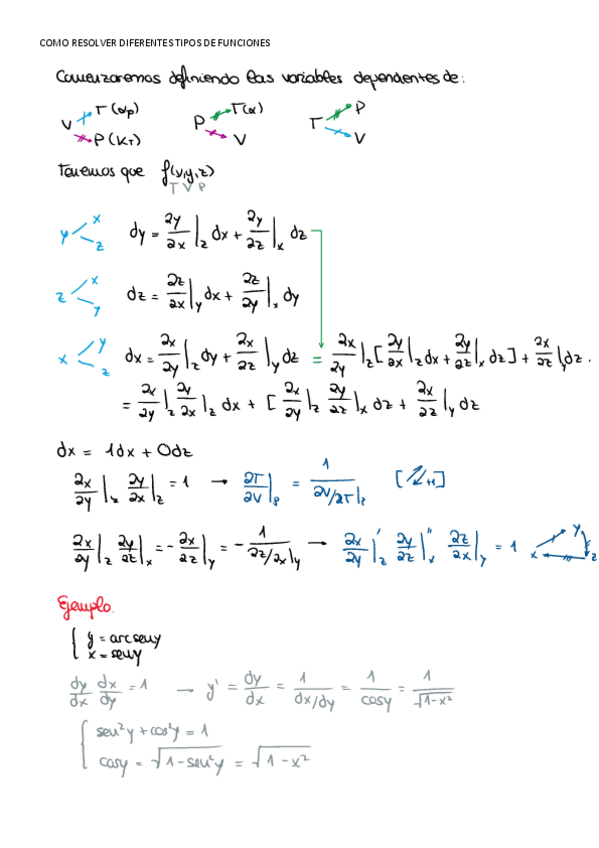 COMO RESOLVER DIFERENTES TIPOS DE FUNCIONES
Comenzaremos definiendo las variables dependentes de:
V T (α/p) P (KT) P T(α) V T P V
Tenemos que f(x,y,z)
T V P
y x z dy = ∂y/∂x|z dx + ∂y/∂z|x dz
z x y dz = ∂z/∂x|y dx + ∂z/∂y|x dy
x y z dx = ∂x/∂y|z dy + ∂x/∂z|y dz = ∂x/∂y|z [∂y/∂x|z dx + ∂y/∂z|x dz] + ∂x/∂z|y dz.
= ∂x/∂y|z ∂y/∂x|z dx + [∂x/∂y|z ∂y/∂z|x dz + ∂x/∂z|y dz
dx = 1dx + 0dz
∂x/∂y|z ∂y/∂x|z = 1 → ∂T/∂V|P = 1/∂V/∂T|P
∂x/∂y|z ∂y/∂z|x = - ∂x/∂z|y = - 1/∂z/∂x|y → ∂x/∂y|'z ∂y/∂z|''x ∂z/∂x|y = 1 x y z
Ejemplo.
y = arcseny
x = seny
dy/dx dx/dy = 1 → y' = dy/dx = 1/dx/dy = 1/cosy = 1/√1-x²
sen²y + cos²y = 1
cosy = √1-sen²y = √1-x²